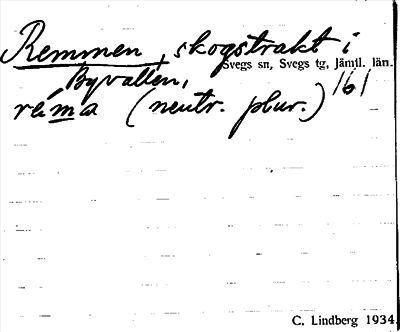 Remmen, skogstrakt i
Svegs sn, Svegs tg, Jämtl. län.
Byvallen, 161
réma (neutr. plur.)
C. Lindberg 1934